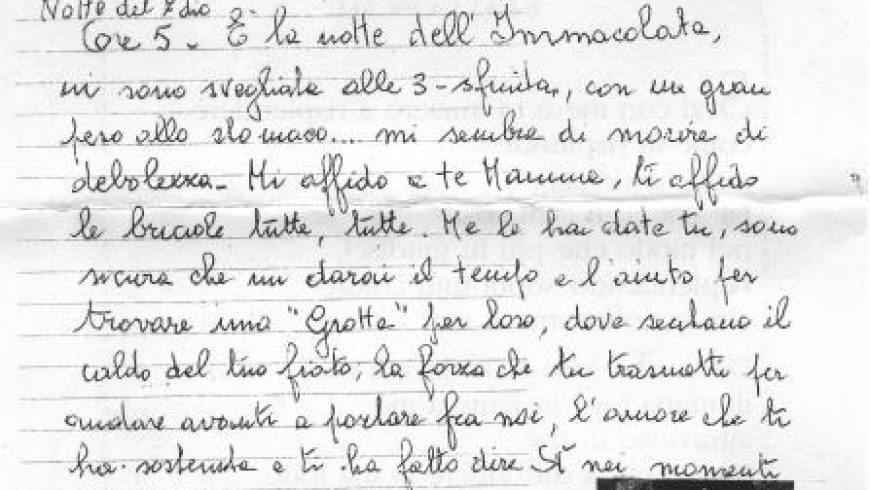 Notte del 7 dic
Ore 5. È la notte dell'Immacolata,
mi sono svegliata alle 3 - sfinita, con un gran
peso allo stomaco.... mi sembra di morire di
debolezza - Mi affido a te Mamma, ti affido
le briciole tutte, tutte. Me le hai date tu, sono
sicura che mi darai il tempo e l'aiuto per
trovare una "Grotta" per loro, dove sentano il
caldo del tuo fiato, la forza che tu trasmetti per
andare avanti a portare fra noi, l'amore che ti
ha sostenuta e ti ha fatto dire SÌ nei momenti